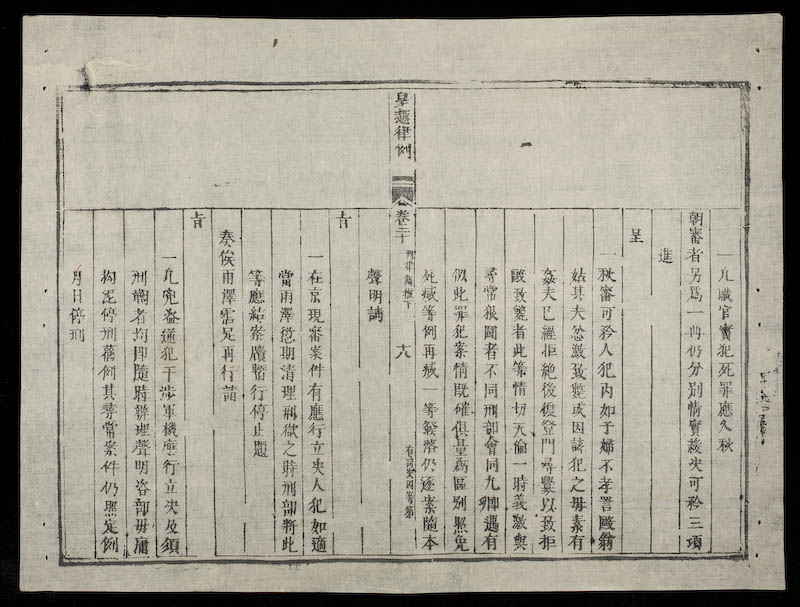 一凡職官實犯死罪應入秋
朝審者另爲一冊仍分别情實緩决可矜三項
進
呈
一秋審可矜人犯内如子婦不孝詈毆翁
姑其夫忿激致斃或因該犯之母素有
姦夫已經拒絶後復登門尋釁以致拒
毆致斃者此等情切天倫一時義激與
尋常狠鬬者不同刑部會同九卿遇有
似此罪犯案情既確俱量爲區别照免
死减等例再减一等發落仍逐案隨本
皇越律例
卷二十
刑律斷獄下
十八
有司决囚等第
聲明請
旨
一在京現審案件有應行立决人犯如適
當雨澤愆期清理刑獄之時刑部將此
等應結案牘暫行停止題
奏俟雨澤霑足再行請
旨
一凡兇盗逆犯干涉軍機應行立决及須
刑鞫者均即隨時辦理聲明咨部毋庸
拘泥停刑舊例其尋常案件仍照定例
月日停刑